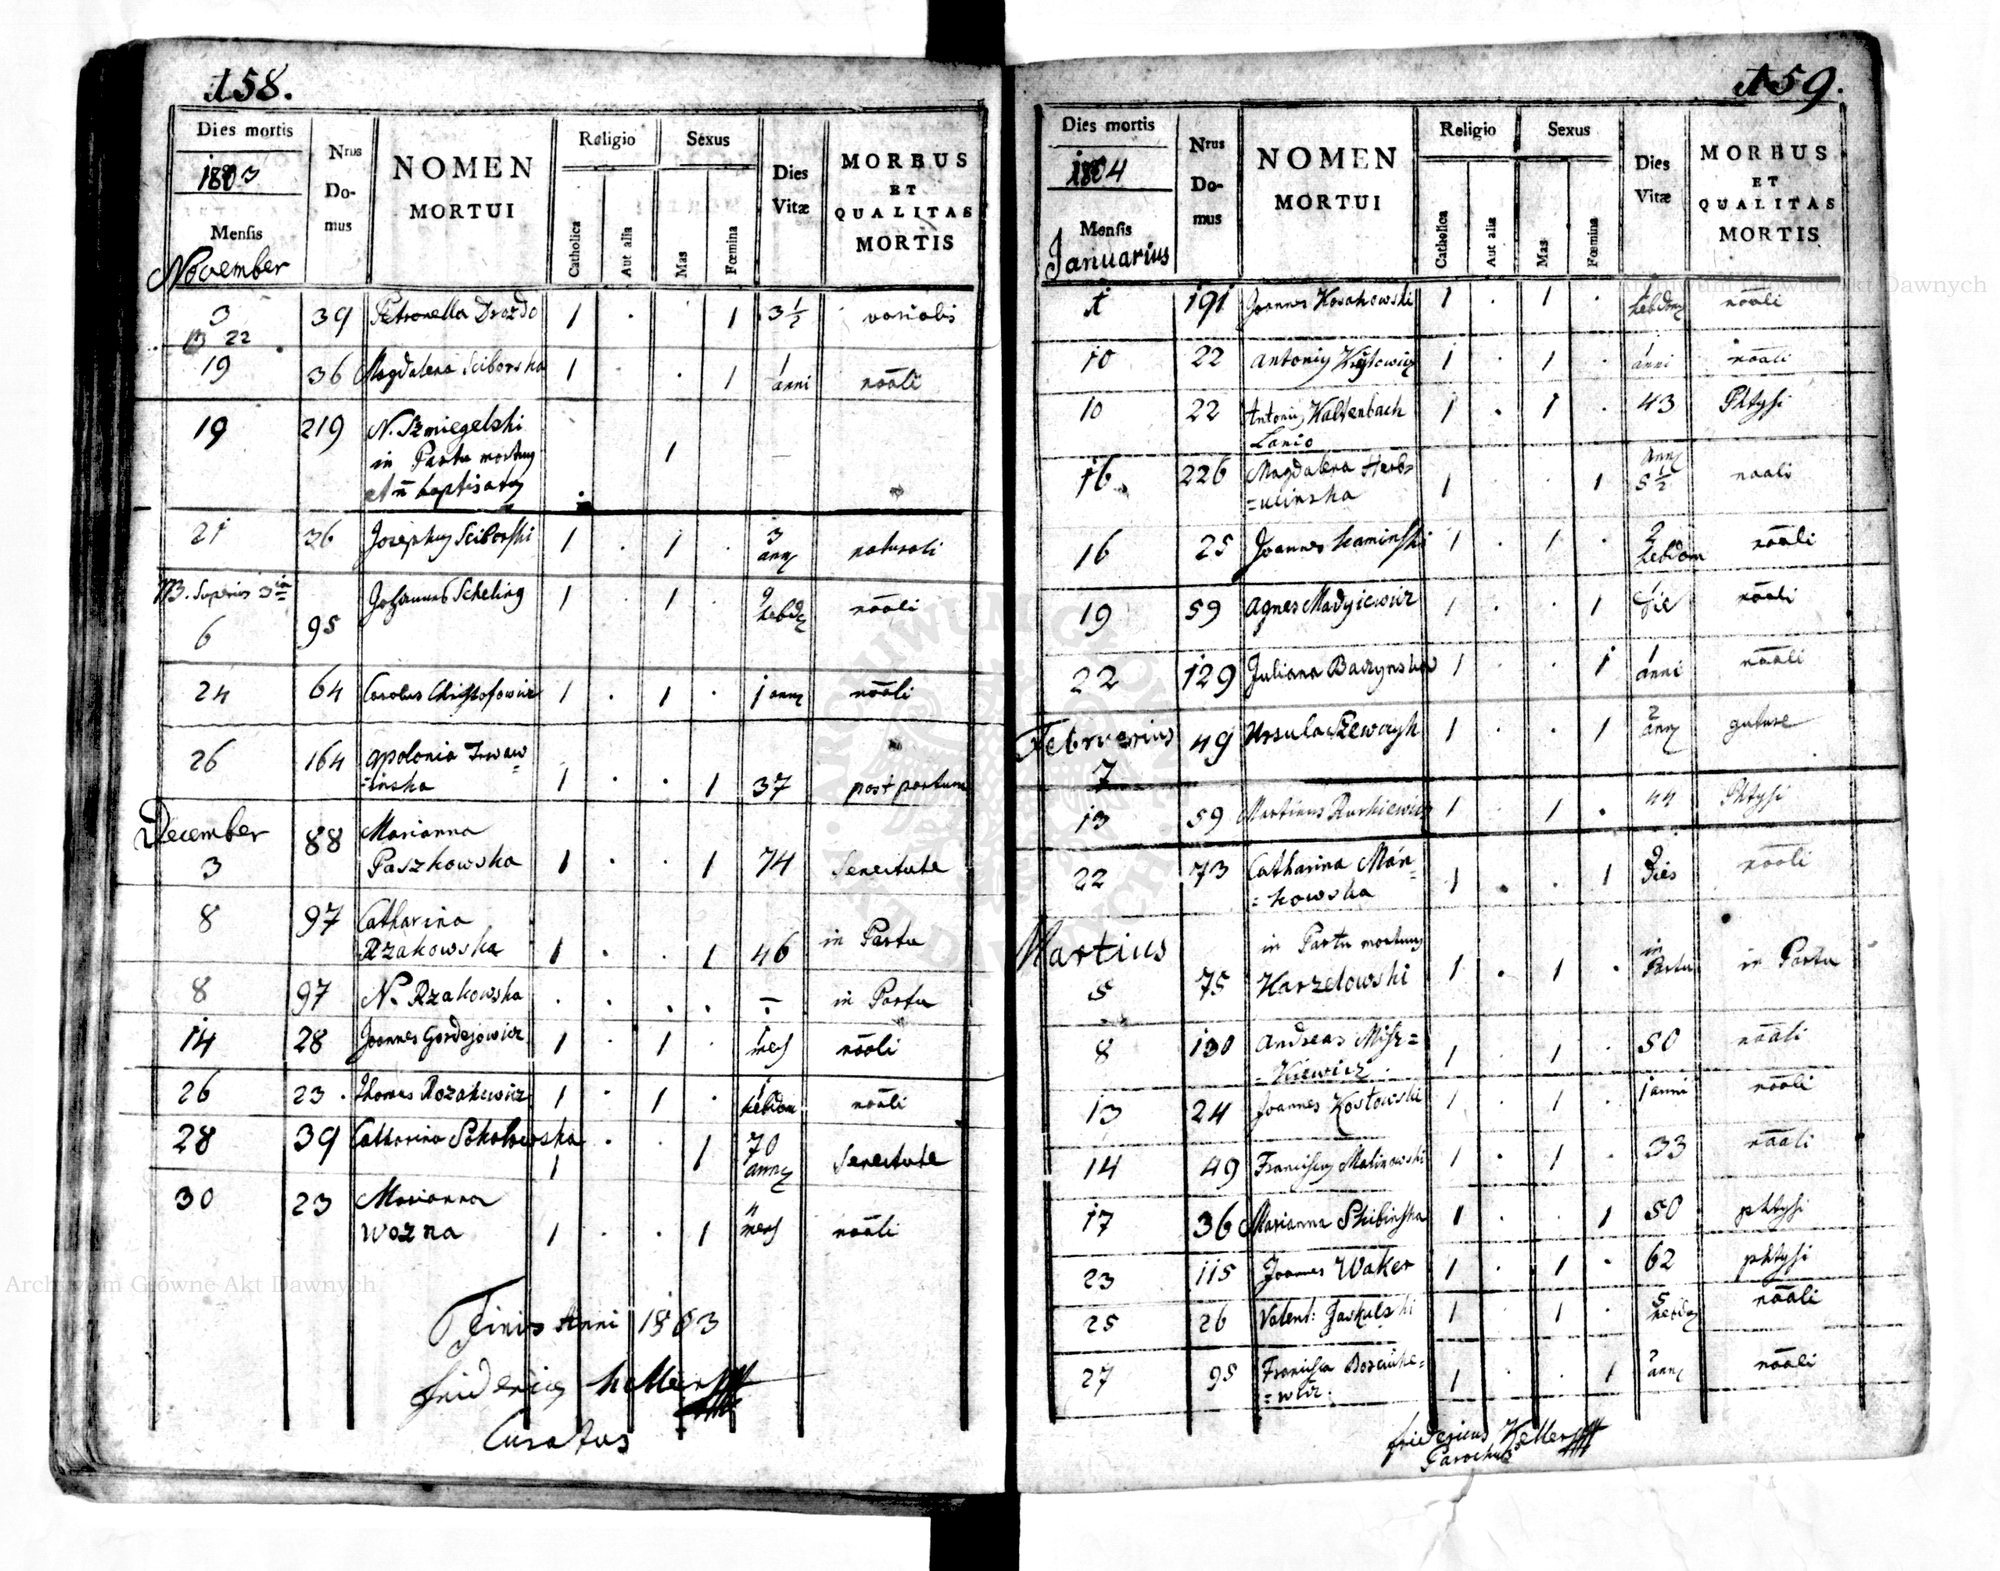 158.
Dies mortis
1803
Mensis
November
Nrus
Do-
mus
NOMEN
MORTUI
Religio
Catholica
Aut alia
Sexus
Mas
Fœmina
Dies
Vitæ
MORBUS
ET
QUALITAS
MORTIS
3 39 Petronella Drozdo 1 . . 1 3 1/2 variolis
22
19 36 Magdalena Sciborska 1 . . 1 1 anni nãali
19 219 N. Szmiegelski
in Partu mortuus 1 —
et ñ baptisatus
21 36 Josephus Sciborski 1 . 1 . 3 annus naturali
NB. Superius 3
6 95 Johannes Scheling 1 . 1 . 9 hebd nãali
24 64 Carolus Christofowicz 1 . 1 . 1 anny nãali
26 164 Apolonia
=linska 1 . . 1 37 post partum
December
3 88 Marianna
Paszkowska 1 . . 1 74 Senectute
8 97 Catharina
Rzakowska 1 . . 1 46 in Partu
8 97 N. Rzakowska . . . . — in Partu
14 28 Joannes Gordejowicz 1 . 1 . 1 mens nãali
26 23 Thomas Rozakiewicz 1 . 1 . 1 hebdom nãali
28 39 Catharina Sokołowska 1 . . 1 70 anny Senectute
30 23 Marianna
Wozna 1 . . 1 mens nãali
Finis Anni 1803
Fridericus Keller
Curatus
159.
Dies mortis
1804
Mensis
Januarius
Nrus
Do-
mus
NOMEN
MORTUI
Religio
Catholica
Aut alia
Sexus
Mas
Fœmina
Dies
Vitæ
MORBUS
ET
QUALITAS
MORTIS
1 191 Joannes Kosakowski 1 . 1 . 1 hebdom nãali
10 22 Antonius 1 . 1 . 1 anni nãali
10 22 Antonius Kaltenbach 1 . 1 . 43 Phtysi
Lanio
16 226 Magdalena Herb=
=ulinska 1 . . 1 anny 5 1/2 naali
16 25 Joannes Kaminski 1 . 1 . 2 hebdom nãali
19 59 Agnes Madyiewicz 1 . . 1 die nãali
22 129 Juliana Baczynska 1 . . 1 1 anni nãali
Februarius
7 49 Ursula Szewczyk 1 . . 1 2 anny guture
13 59 Martinus Rurkiewicz 1 . 1 . 44 Phtysi
22 73 Catharina Mán=
=kowska 1 . . 1 9 dies nãali
Martius
in Partu mortuus
8 75 Karzelowski 1 . 1 . in Partu in Partu
8 130 Andreas Misz=
=Kiewicz 1 . 1 . 50 nãali
13 24 Joannes Kostowski 1 . 1 . 1 anni nãali
14 49 Franciscus Malinowski 1 . 1 . 33 nãali
17 36 Marianna Skibinska 1 . . 1 50 phtysi
23 115 Joannes Waker 1 . 1 . 62 phtysi
25 26 Valent: Jaskulski 1 . 1 . 5 hebdom nãali
27 95 Francisca
=wicz. 1 . . 1 2 anny nãali
Fridericus Keller
Parochus
Archiwum Główne Akt Dawnych
Archiwum Główne Akt Dawnych
ARCHIWUM GŁÓWNE AKT DAWNYCH